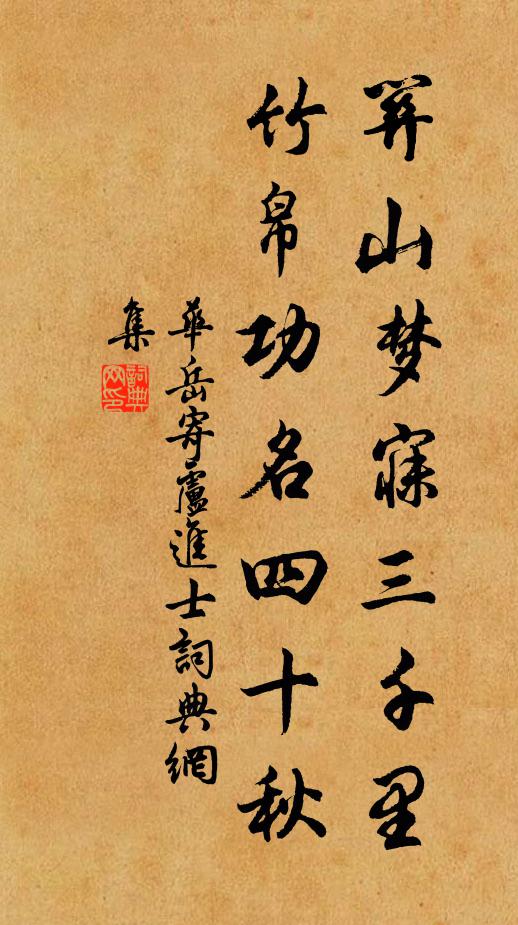 关山梦寐三千里
竹帛功名四十秋
華岳寄盧進士詞典網
集
詞典网印